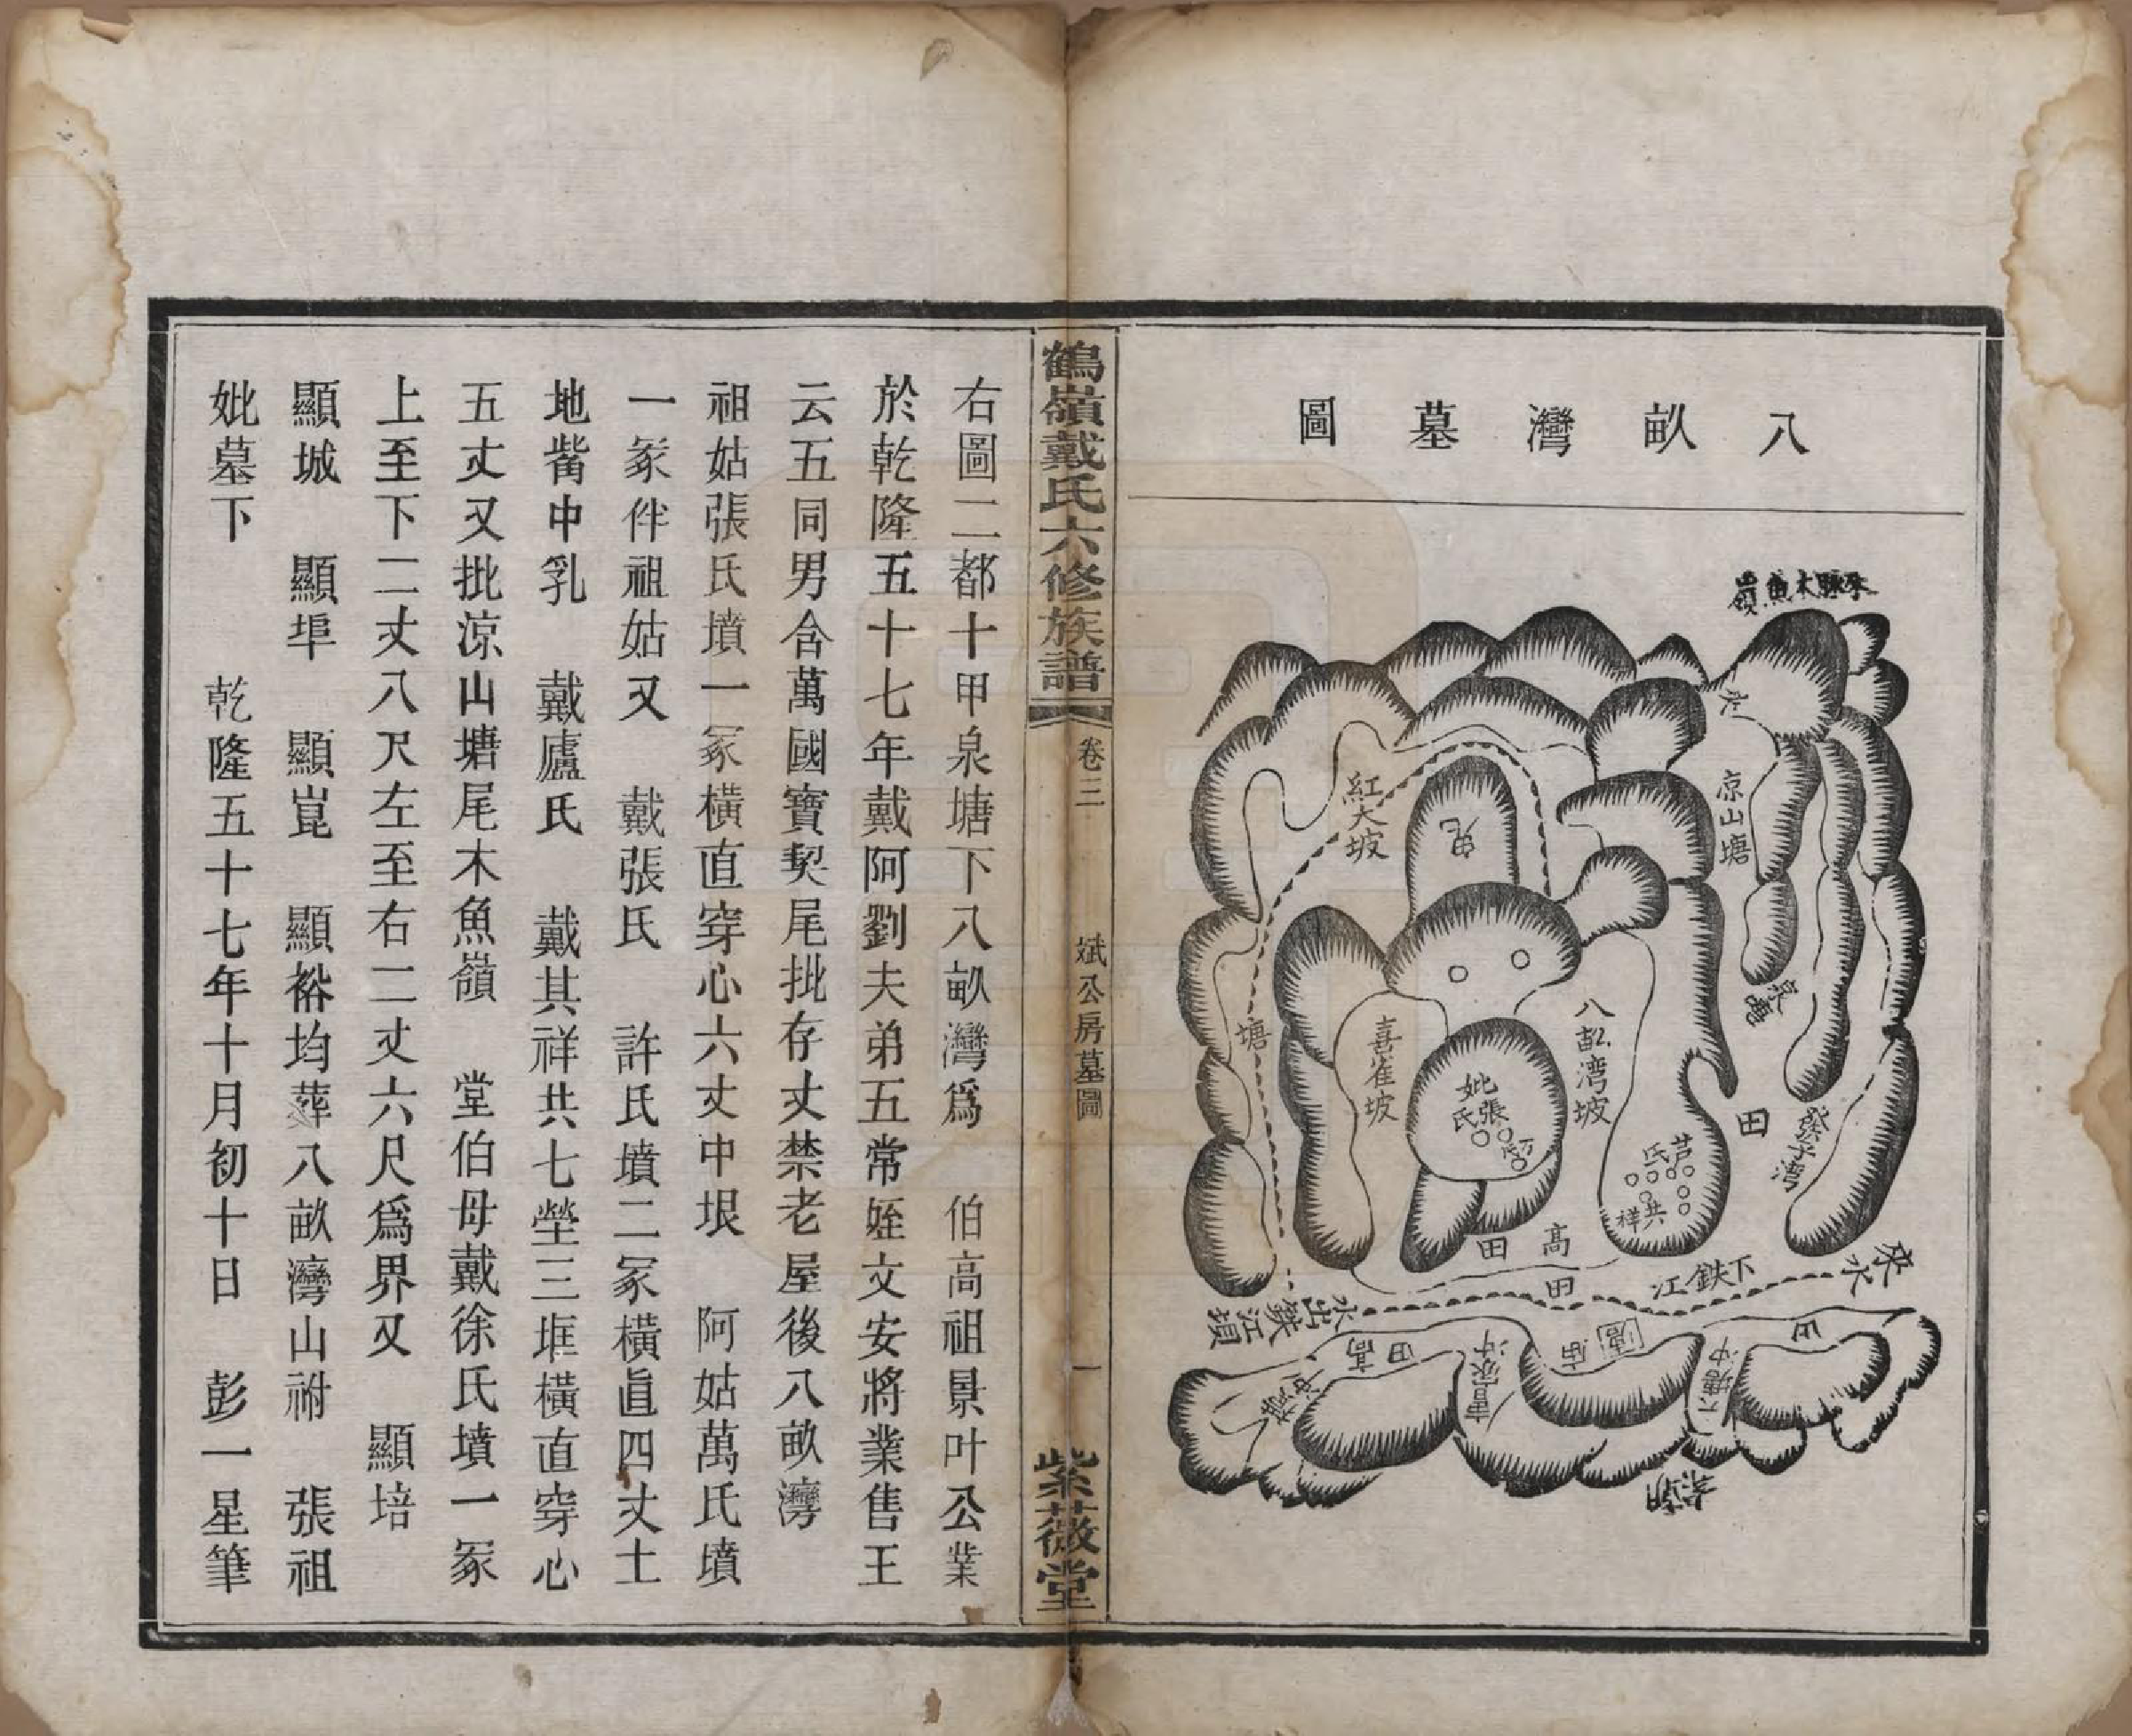 八畝灣墓圖
來脉木魚嶺
水
凉山塘
泉塘
田
祭子湾
來水
紅大坡
八畝湾坡
喜雀坡
塘
妣張氏
芦氏
共祥
高田
田
下鉄江
水出鐵江壩
高田
富家冲
庙
田
大塘冲
朝案
鶴嶺戴氏六修族譜
卷三
斌公房墓圖
一
紫薇堂
右圖二都十甲泉塘下八畝灣爲 伯高祖景叶公業
於乾隆五十七年戴阿劉夫弟五常姪文安將業售王
云五同男含萬國寶契尾批存丈禁老屋後八畝灣
祖姑張氏墳一冢橫直穿心六丈中垠 阿姑萬氏墳
一冢伴祖姑又 戴張氏 許氏墳二冢橫直四丈土
地嘴中乳 戴廬氏 戴其祥共七塋三堆橫直穿心
五丈又批涼山塘尾木魚嶺 堂伯母戴徐氏墳一冢
上至下二丈八尺左至右二丈六尺爲界又 顯培
顯城 顯埠 顯崑 顯裕均葬八畝灣山祔 張祖
妣墓下 乾隆五十七年十月初十日 彭一星筆